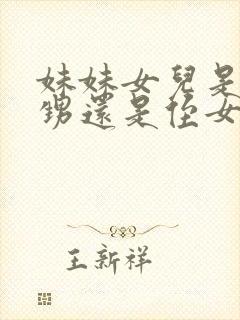 妹妹女兒是
甥還是侄女
王新祥